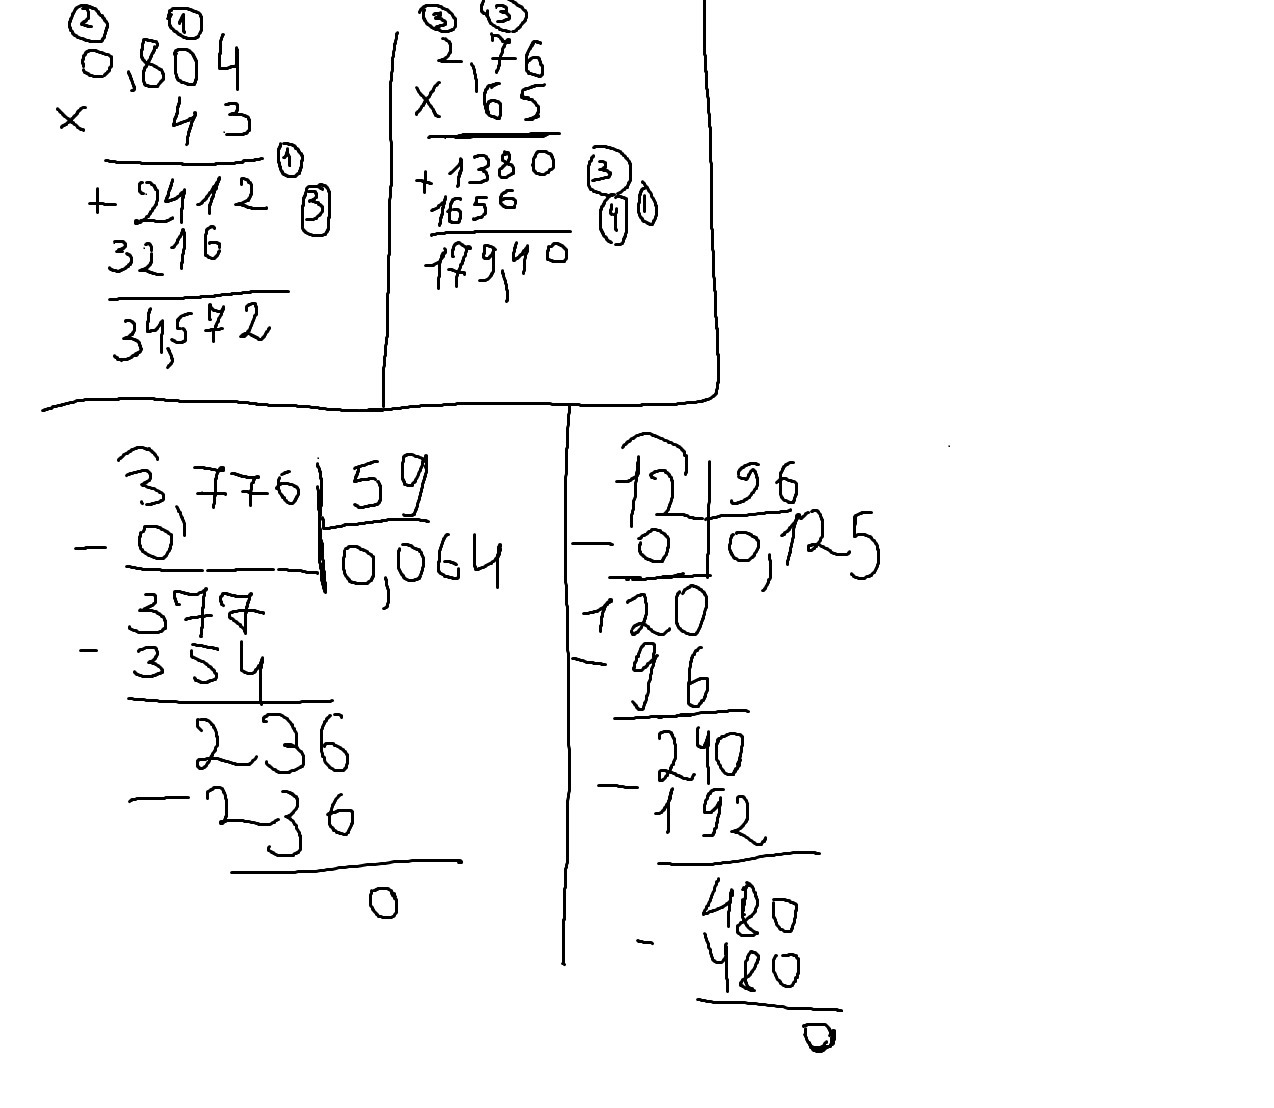 ② ①
0,804
× 43
① 
+ 2412 ③
3216
34,572
③ 43
2,76
× 65
+ 1380 ③
1656 ④ ①
179,40
3,776 | 59
- 0 0,064
377
- 354
236
- 236
0
12 | 96
- 0 0,125
120
- 96
240
- 192
480
- 480
0